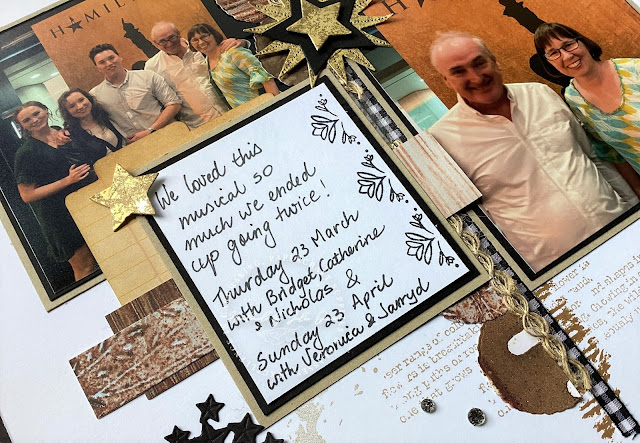 HAMIL
HAMIL
We loved this
musical so
much we ended
up going twice!
Thursday 23 March
with Bridget, Catherine
& Nicholas &
Sunday 23 April
with Veronica & Jarryd